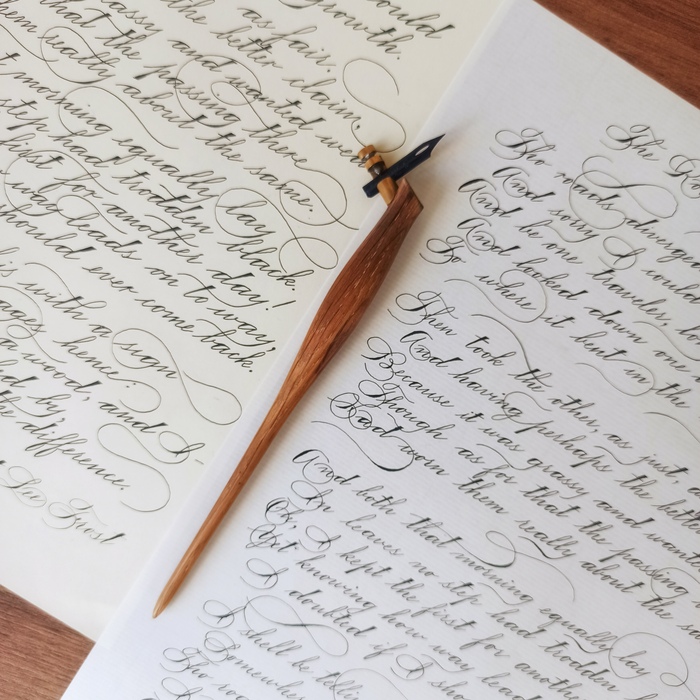 could
growth.
as fair,
the better claim,
grassy and wanted
that the passing there
them really about the same.
morning equally lay
step had trodden black.
first for another day!
way leads on to way,
should ever come back.
with a sigh
ages hence:
a wood, and I-
by
the difference.
Frost
The
Two roads diverged
And sorry I could
And be one traveler,
And looked down one
To where it bent in the
Then took the other, as just
And having perhaps the
Because it was grassy and
Though as for that the passing
Had worn them really about the
And both that morning equally lay
In leaves no step had trodden
Oh, I kept the first for another
Yet knowing how way
I doubted if I
I shall be
Somewhere
Two